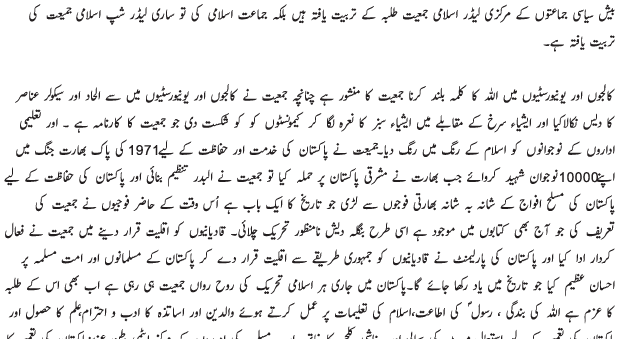 بیش سیاسی جماعتوں کے مرکزی لیڈر اسلامی جمعیت طلبہ کے تربیت یافتہ ہیں بلکہ جماعت اسلامی کی تو ساری لیڈر شپ اسلامی جمیعت کی
تربیت یافتہ ہے۔
کالجوں اور یونیورسٹیوں میں اللہ کا کلمہ بلند کرنا جمعیت کا منشور ہے چنانچہ جمعیت نے کالجوں اور یونیورسٹیوں میں سے الحاد اور سیکولر عناصر
کا دیس نکالاکیا اور ایشیاء سرخ کے مقابلے میں ایشیاء سبز کا نعرہ لگا کر کیمونسٹوں کو کو شکست دی جو جمعیت کا کارنامہ ہے ۔ اور تعلیمی
اداروں کے نوجوانوں کو اسلام کے رنگ میں رنگ دیا۔جمعیت نے پاکستان کی خدمت اور حفاظت کے لیے1971 کی پاک بھارت جنگ میں
اپنے10000نوجوان شہید کروائے جب بھارت نے مشرقی پاکستان پر حملہ کیا تو جمعیت نے البدر تنظیم بنائی اور پاکستان کی حفاظت کے لیے
پاکستان کی مسلح افواج کے شانہ بہ شانہ بھارتی فوجوں سے لڑی جو تاریخ کا ایک باب ہے اُس وقت کے حاضر فوجیوں نے جمعیت کی
تعریف کی جو آج بھی کتابوں میں موجود ہے اسی طرح بنگلہ دیش نامنظور تحریک چلائی۔ قادیانیوں کو اقلیت قرار دینے میں جمعیت نے فعال
کردار ادا کیا اور پاکستان کی پارلیمنٹ نے قادیانیوں کو جمہوری طریقے سے اقلیت قرار دے کر پاکستان کے مسلمانوں اور امت مسلمہ پر
احسان عظیم کیا جو تاریخ میں یاد رکھا جائے گا۔پاکستان میں جاری ہر اسلامی تحریک کی روح رواں جمعیت ہی رہی ہے اب بھی اس کے طلبہ
کا عزم ہے اللہ کی بندگی ، رسولؐ کی اطاعت،اسلام کی تعلیمات پر عمل کرتے ہوئے والدین اور اساتذہ کا ادب و احترام،علم کا حصول اور